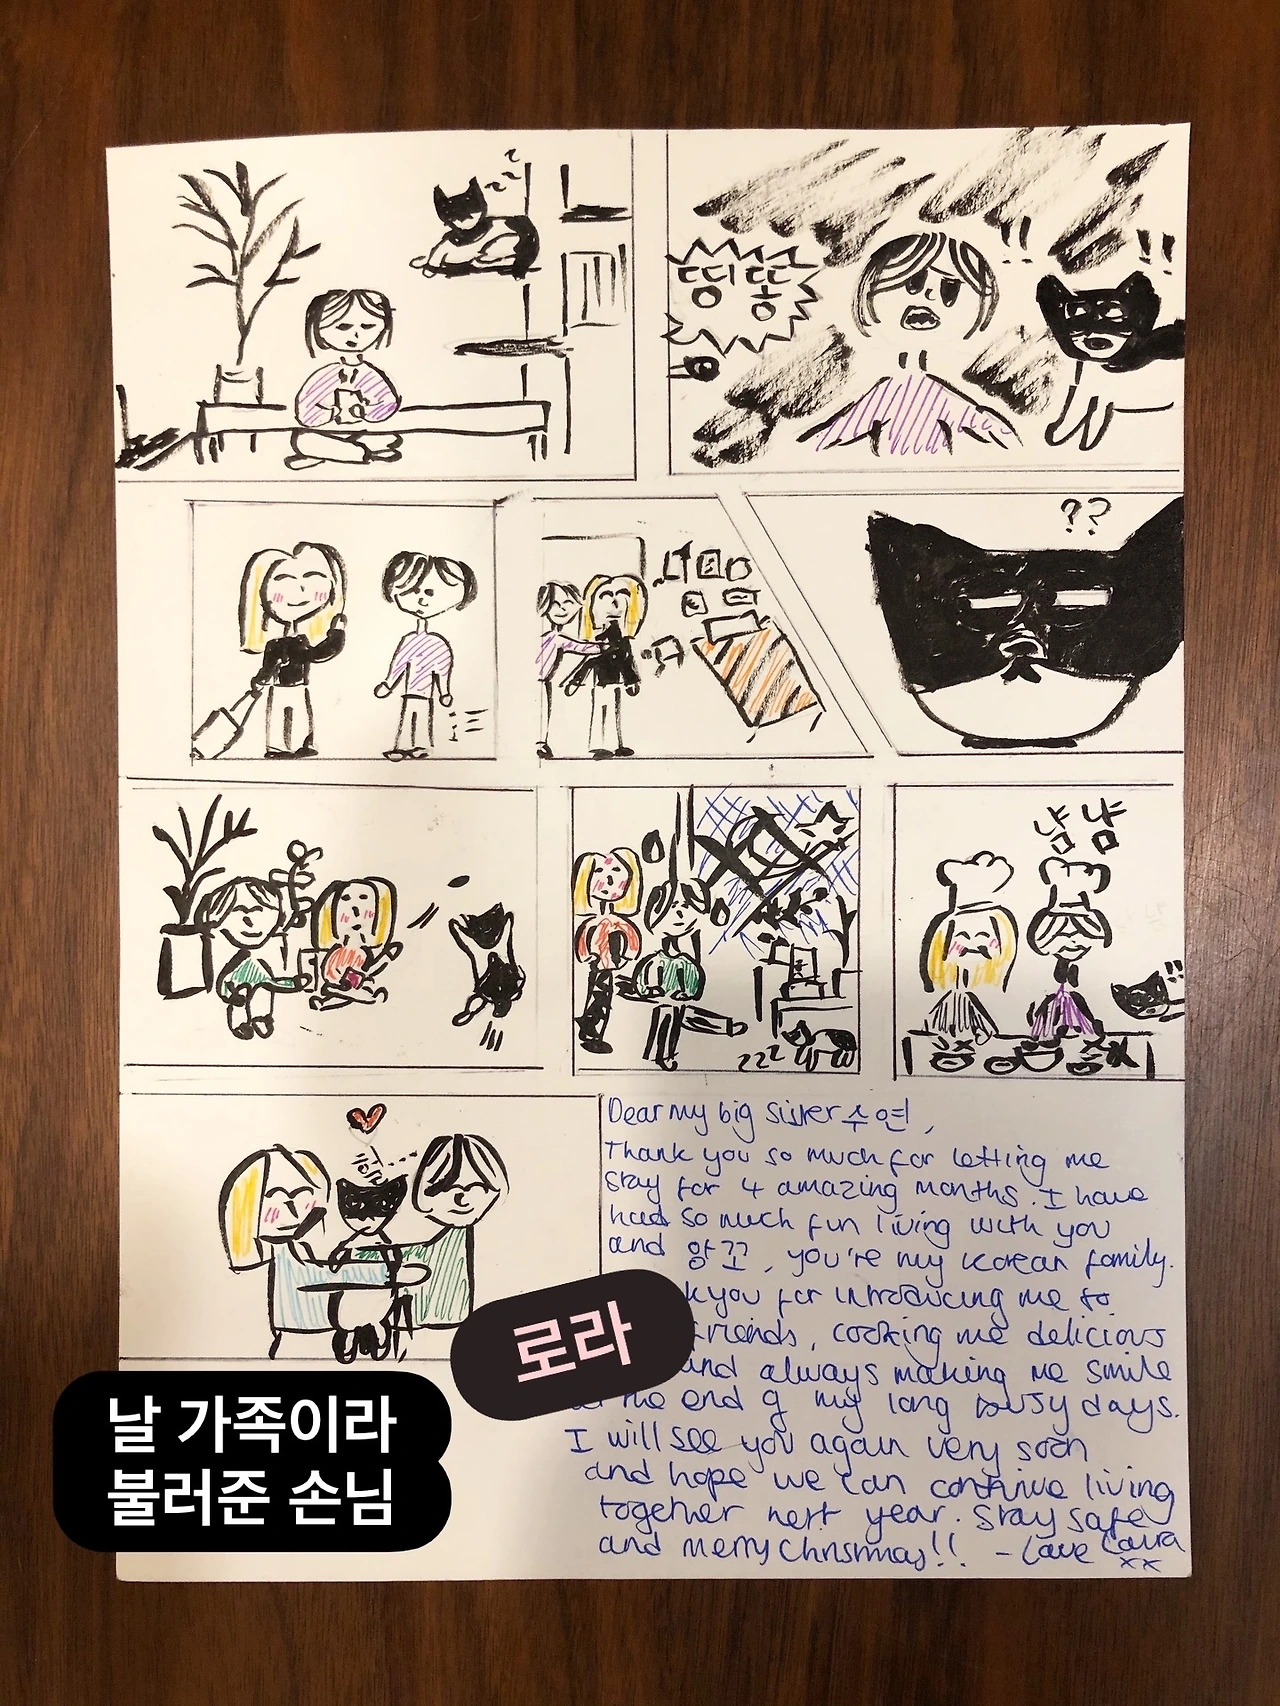 z z z
띵동
!!
!!
??
냠냠
!!
zzz
Dear my big sister 수연,
Thank you so much for letting me
stay for 4 amazing months. I have
had so much fun living with you
and 앙꼬, you're my Korean family.
you for introducing me to
friends, cooking me delicious
and always making me smile
the end of my long busy days.
I will see you again very soon
and hope we can continue living
together next year. Stay safe
and merry Christmas!! - Love Laura
xx
로라
날 가족이라
불러준 손님